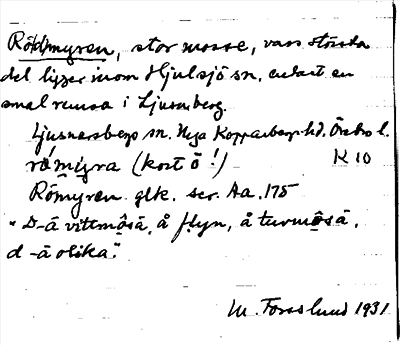 Rö(d)myren, stor mosse, vars största
del ligger inom Hjulsjö sn, endast en
smal remsa i Ljusnarsberg.
Ljusnarsbergs sn. Nya Kopparbergs hd. Örebro l.
römỵra (kort ö!) K 10
Römyren glk. scr. Aa. 175
"D-ä vittmosä, å flyn, å turmosä,
d-ä olika."
M. Forsslund 1931